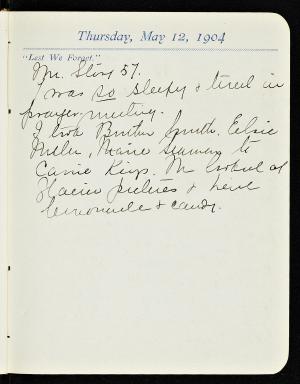 Thursday, May 12, 1904
"Lest We Forget."
Mr. Story 57.
I was so sleepy & tired in
prayer meeting.
I took Smith. Elsie
Miller, Marie Seaman to
Carrie Kings. We looked at
pictures & had
lemonade & candy.